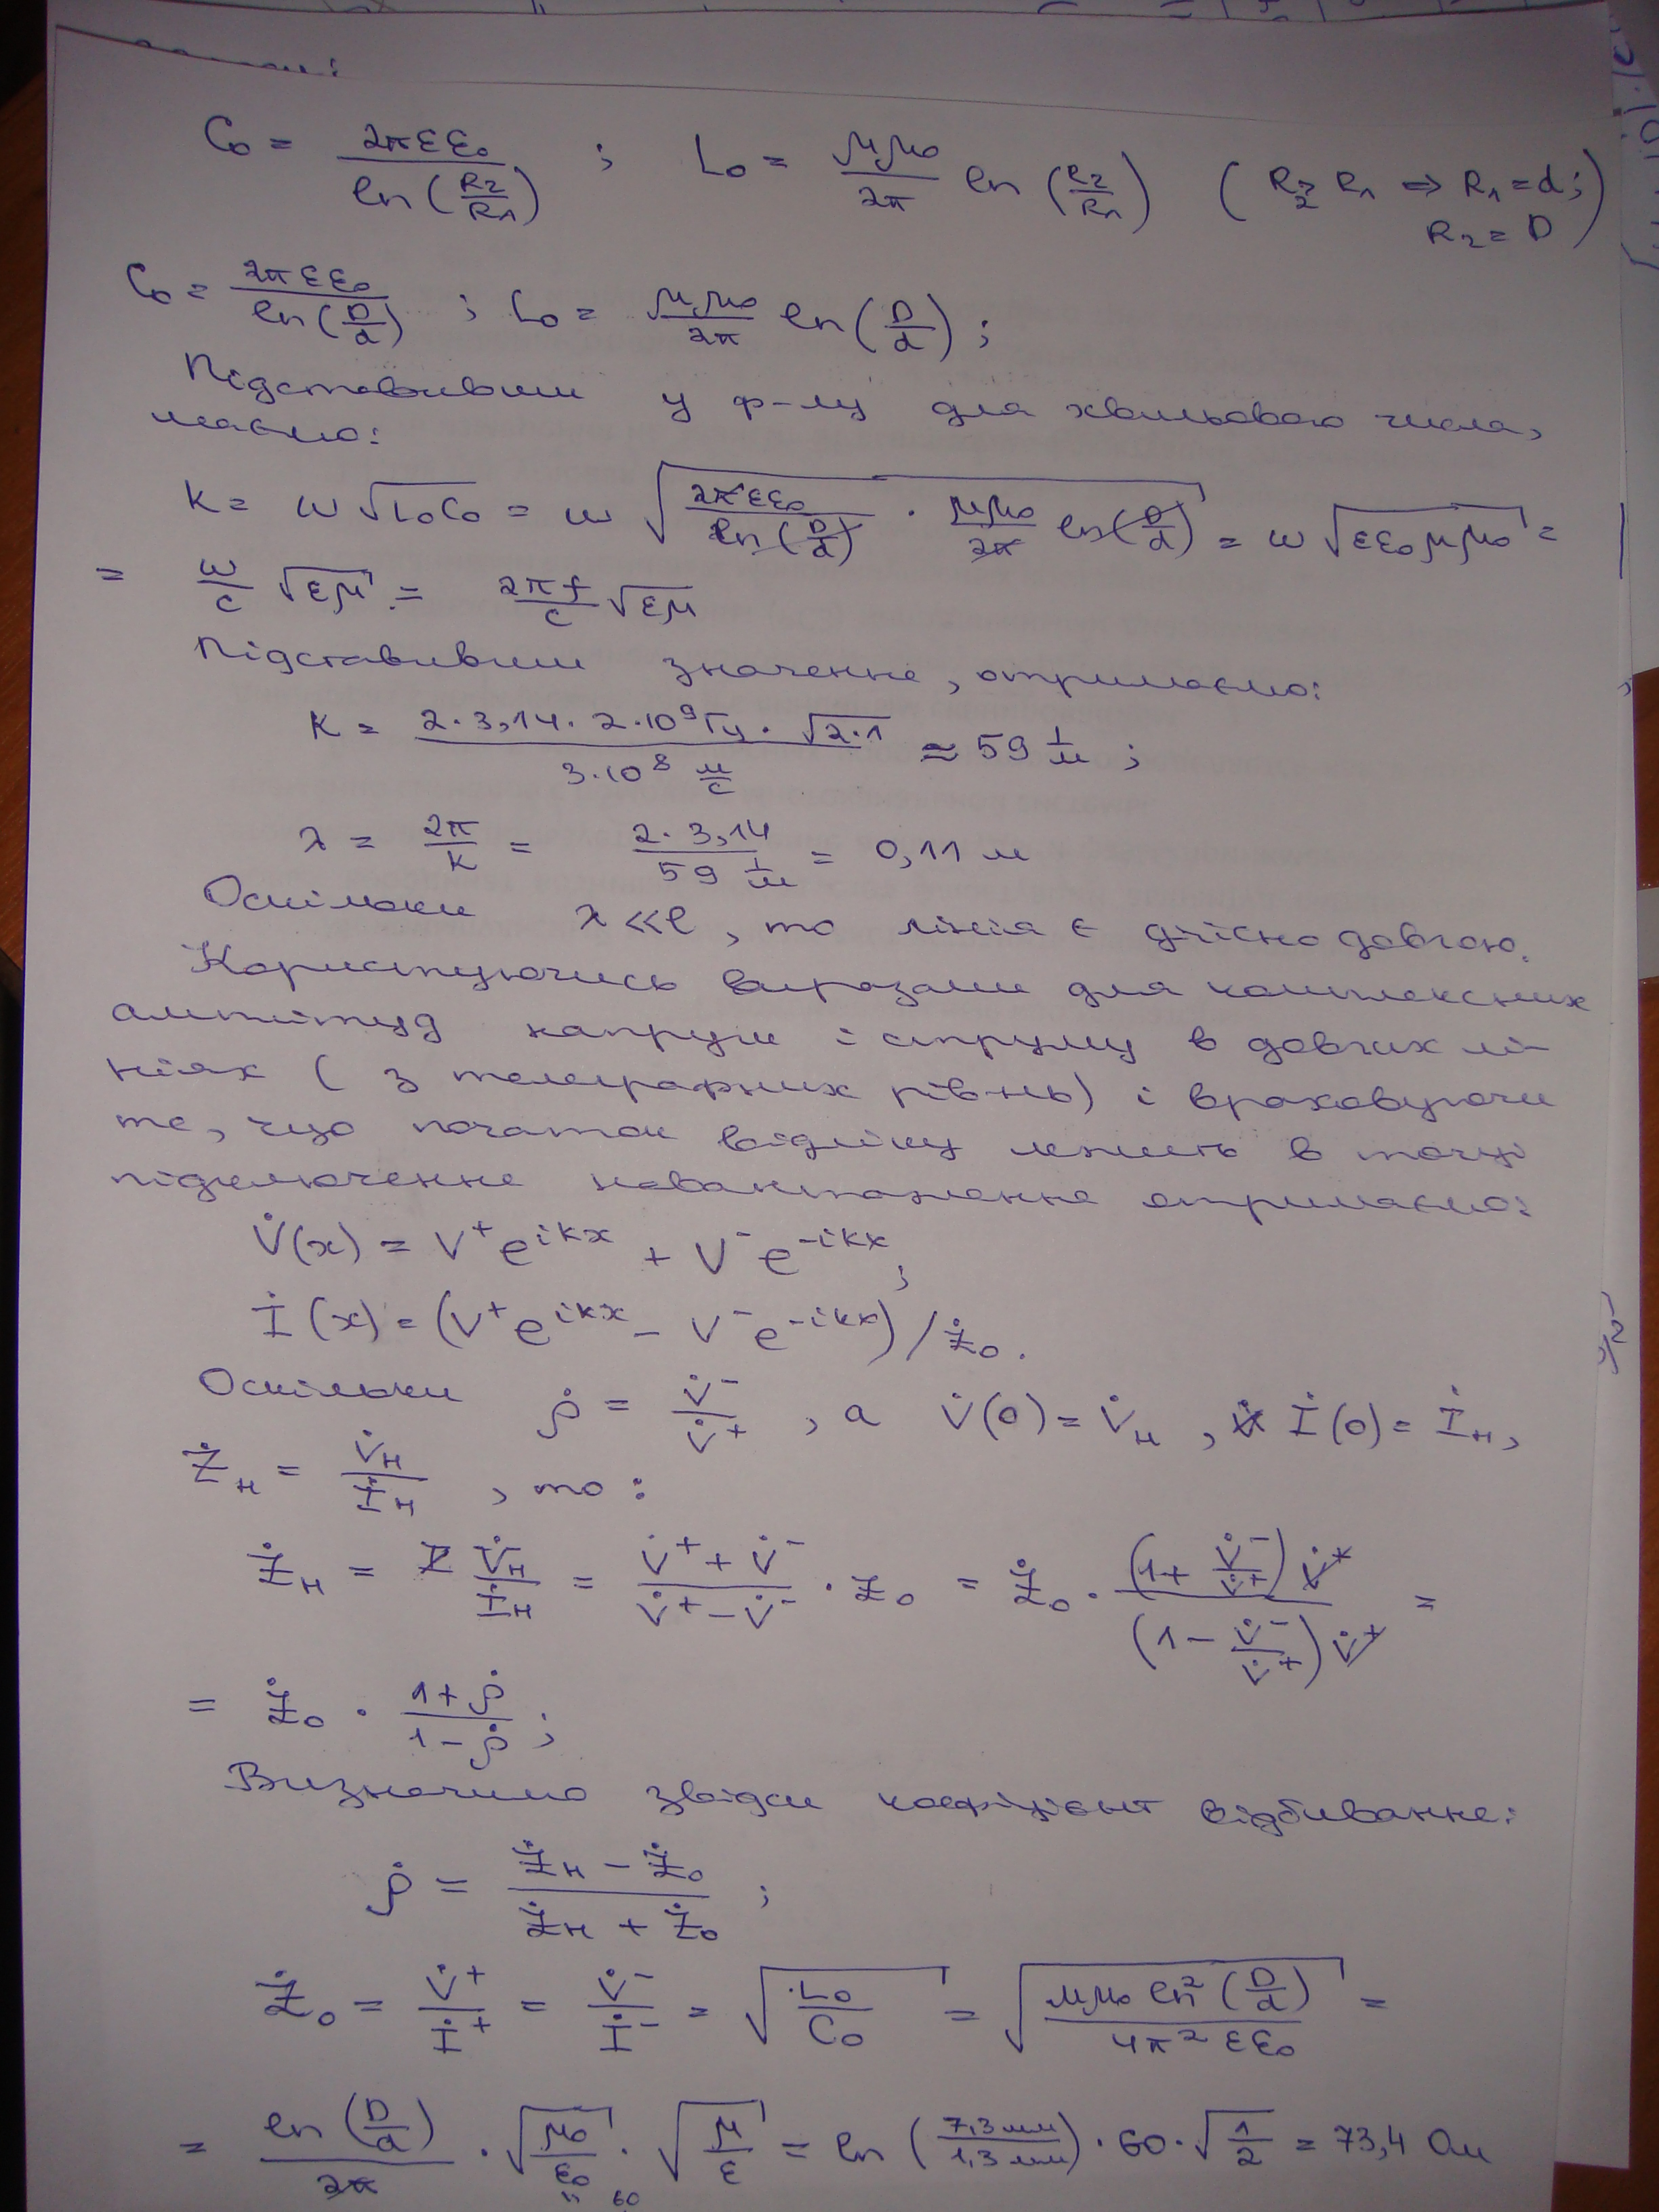 C₀ = 2πεε₀ / ln(R₂/R₁) ; L₀ = μμ₀/2π ln(R₂/R₁) (R₂ R₁ ⇒ R₁ = d; R₂ = D)
C₀ = 2πεε₀ / ln(D/d) ; L₀ = μμ₀/2π ln(D/d);
Підставивши у ф-лу для хвильового числа,
маємо:
k = ω√(L₀C₀) = ω√(2πεε₀/ln(D/d) · μμ₀/2π ln(D/d)) = ω√(εε₀μμ₀) =
= ω/c √(εμ) = 2πf/c √(εμ)
Підставивши значення, отримаємо:
k = 2·3,14·2·10⁹Гц·√(2·1) / 3·10⁸ м/с ≈ 59 1/м;
λ = 2π/k = 2·3,14 / 59 1/м = 0,11 м
Оскільки λ ≪ l, то лінія є дійсно довгою.
Користуючись виразами для комплексних
амплітуд напруги і струму в довгих лі-
ніях (з телеграфних рівнь) і враховуючи
те, що початок відліку лежить в точці
підключення навантаження отримаємо:
V̇(x) = V⁺e^{ikx} + V⁻e^{-ikx};
İ(x) = (V⁺e^{ikx} - V⁻e^{-ikx})/Ż₀.
Оскільки ρ̇ = V̇⁻/V̇⁺, а V̇(0) = V̇н, İ(0) = İн,
Żн = V̇н/İн, то:
Żн = V̇н/İн = (V̇⁺ + V̇⁻)/(V̇⁺ - V̇⁻) · z₀ = Ż₀ · (1 + V̇⁻/V̇⁺)V̇⁺ / (1 - V̇⁻/V̇⁺)V̇⁺ =
= Ż₀ · (1+ρ̇)/(1-ρ̇);
Визначимо звідси коефіцієнт відбивання:
ρ̇ = (Żн - Ż₀)/(Żн + Ż₀);
Ż₀ = V̇⁺/İ⁺ = V̇⁻/İ⁻ = √(L₀/C₀) = √(μμ₀ ln²(D/d) / 4π²εε₀) =
= ln(D/d)/2π · √(μ₀/ε₀) · √(μ/ε) = ln(7,3 мм/1,3 мм) · 60 · √(1/2) = 73,4 Ом
60